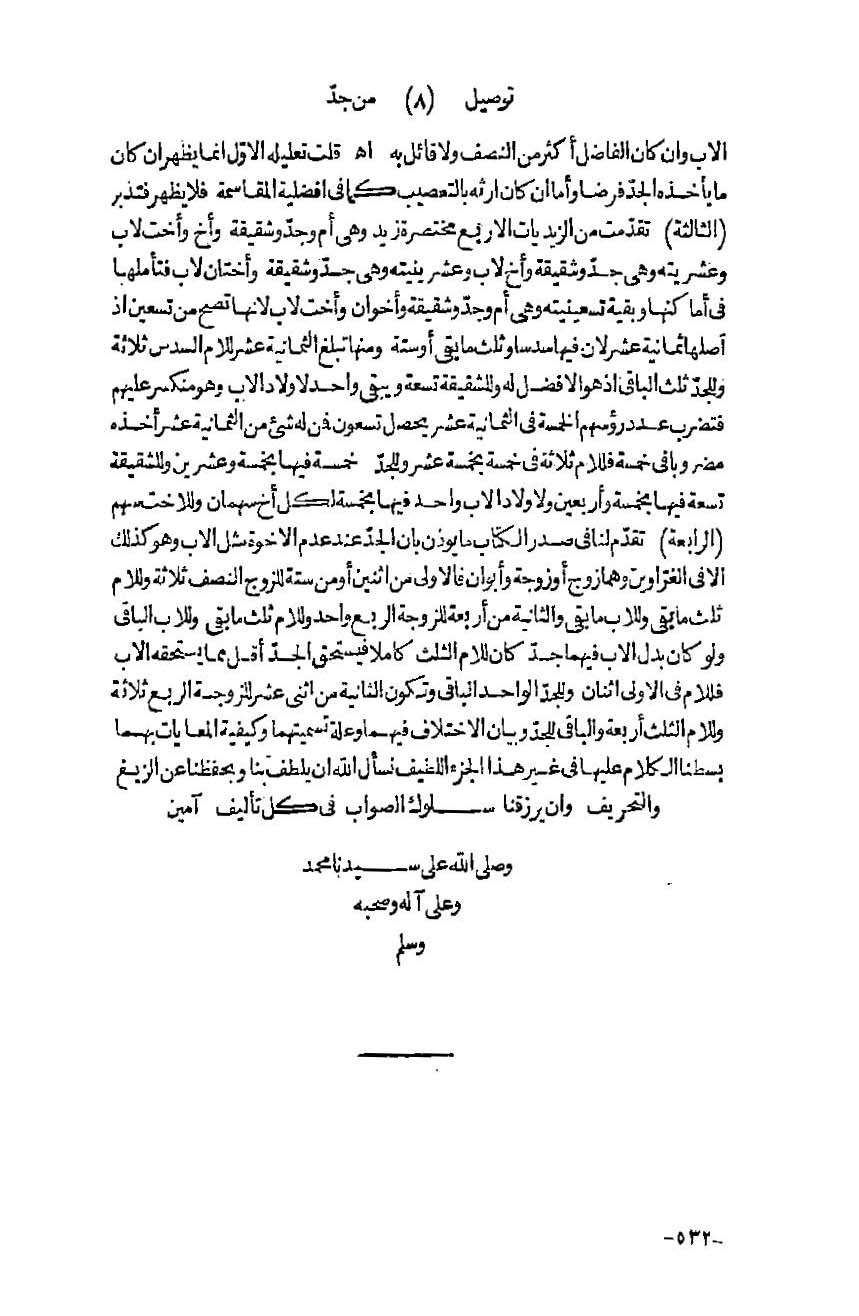 توصيل (٨) من جدّ
الاب وان كان الفاضل أكثر من النصف ولا قائل به اه قلت تعليله الاوّل انما يظهر ان كان
ما يأخذه الجدّ فرضا وأما ان كان ارثه بالتعصيب كما فى افضلية المقاسمة فلا يظهر فتدبر
(الثالثة) تقدّمت من الزيديات الاربع مختصرة زيد وهى أم وجدّ وشقيقة وأخ وأخت لاب
وعشريته وهى جدّ وشقيقة وأخ لاب وعشرينيته وهى جدّ وشقيقة وأختان لاب فتأملها
فى أماكنها وبقية تسعينيته وهى أم وجدّ وشقيقة وأخوان وأخت لاب لانها تصح من تسعين اذ
أصلها ثمانية عشر لان فيها سدسا وثلث ما بقى أو ستة ومنها تبلغ الثمانية عشر للام السدس ثلاثة
وللجدّ ثلث الباقى اذ هو الافضل له وللشقيقة تسعة ويبقى واحد لاولاد الاب وهو منكسر عليهم
فتضرب عدد رؤسهم الخمسة فى الثمانية عشر يحصل تسعون فمن له شئ من الثمانية عشر أخذه
مضروبا فى خمسة فللام ثلاثة فى خمسة بخمسة عشر وللجدّ خمسة فيها بخمسة وعشرين وللشقيقة
تسعة فيها بخمسة وأربعين ولاولاد الاب واحد فيها بخمسة لكل أخ سهمان وللاخت سهم
(الرابعة) تقدّم لنا فى صدر الكتاب ما يوذن بان الجدّ عند عدم الاخوة مثل الاب وهو كذلك
الا فى الغرّاوين وهما زوج أو زوجة وأبوان فالاولى من اثنين أو من ستة للزوج النصف ثلاثة وللام
ثلث ما بقى وللاب ما بقى والثانية من أربعة للزوجة الربع واحد وللام ثلث ما بقى وللاب الباقى
ولو كان بدل الاب فيهما جدّ كان للام الثلث كاملا فيستحق الجدّ أقل مما يستحقه الاب
فللام فى الاولى اثنان وللجدّ الواحد الباقى وتكون الثانية من اثنى عشر للزوجة الربع ثلاثة
وللام الثلث أربعة والباقى للجدّ وبيان الاختلاف فيهما وعلة تسميتهما وكيفية المعايات بهما
بسطنا الكلام عليها فى غير هذا الجزء اللطيف نسأل الله ان يلطف بنا ويحفظنا عن الزيغ
والتحريف وان يرزقنا سلوك الصواب فى كل تأليف آمين
وصلى الله على سيدنا محمد
وعلى آله وصحبه
وسلم
-٥٣٢-